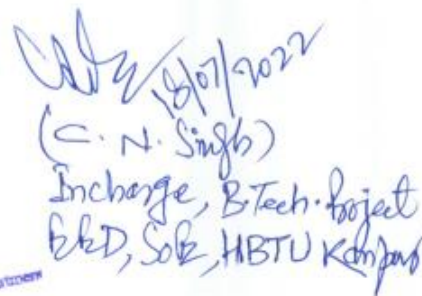 18/07/2022
(C. N. Singh)
Incharge, B.Tech. Project
EED, SoE, HBTU Kanpur